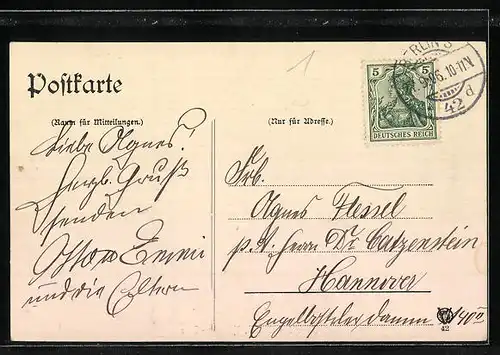 Postkarte
(Raum für Mitteilungen.)
(Nur für Adresse.)
1
5 5
DEUTSCHES REICH
BERLIN S
10-11V
42 d
Liebe Agnes!
Herzl. Gruß
senden
Otto u Emmi
und die Eltern
Frl.
Agnes Flessel
p. A. Herrn Dr Catzenstein
Hannover
Engelbosteler damm 140
42